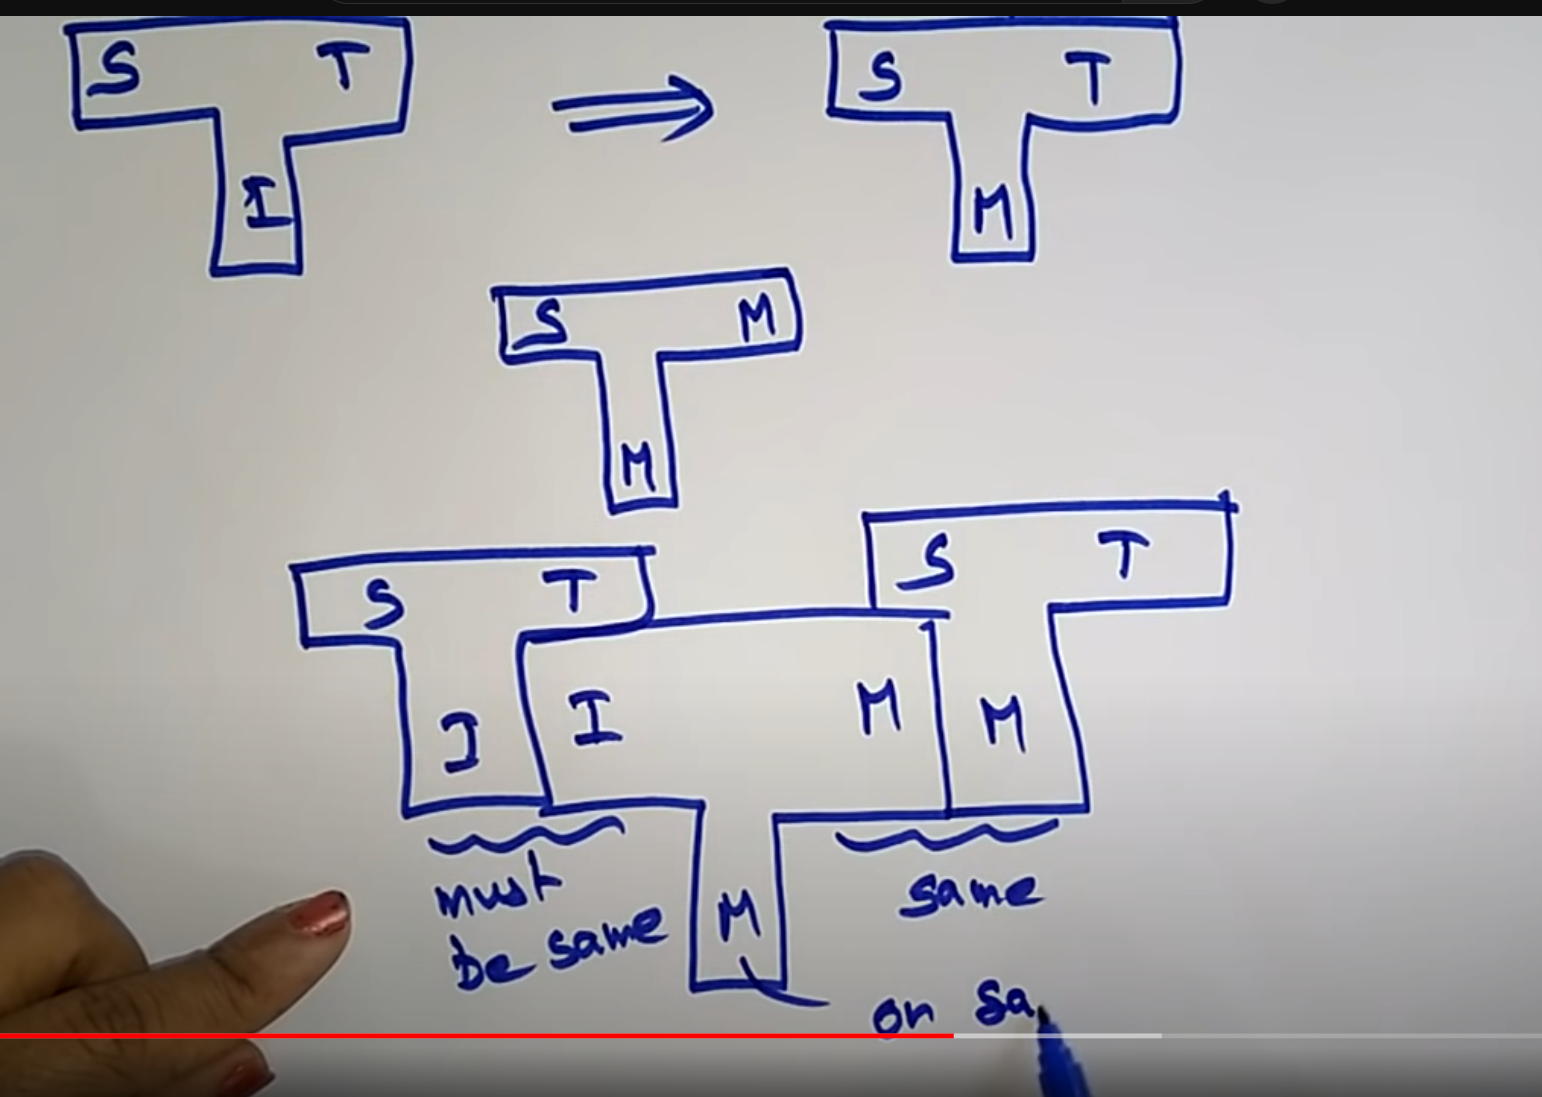 S T
I
S T
M
S M
M
S T
I
I M
S T
M
M
must
be same
same
on sa